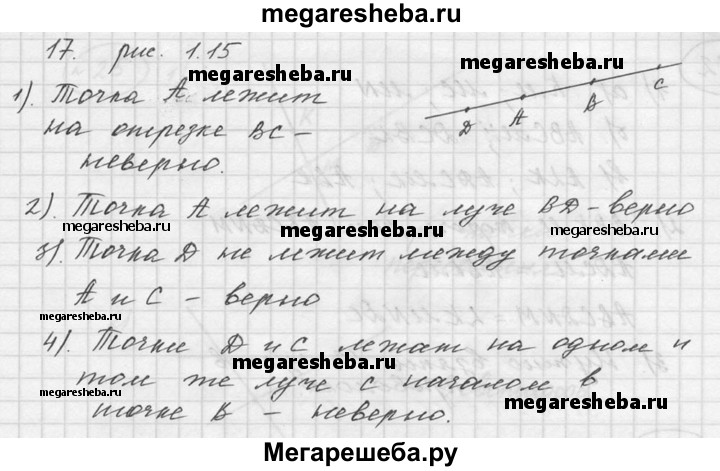 megaresheba.ru
17. рис. 1.15
1). Точка A лежит
на отрезке BC –
неверно.
D A B C
2). Точка A лежит на луче BD – верно
megaresheba.ru
megaresheba.ru
megaresheba.ru
3). Точка D не лежит между точками
A и C – верно
megaresheba.ru
4). Точки D и C лежат на одном и
megaresheba.ru
том же луче с началом в
megaresheba.ru
megaresheba.ru
точке B – неверно.
Мегарешеба.ру